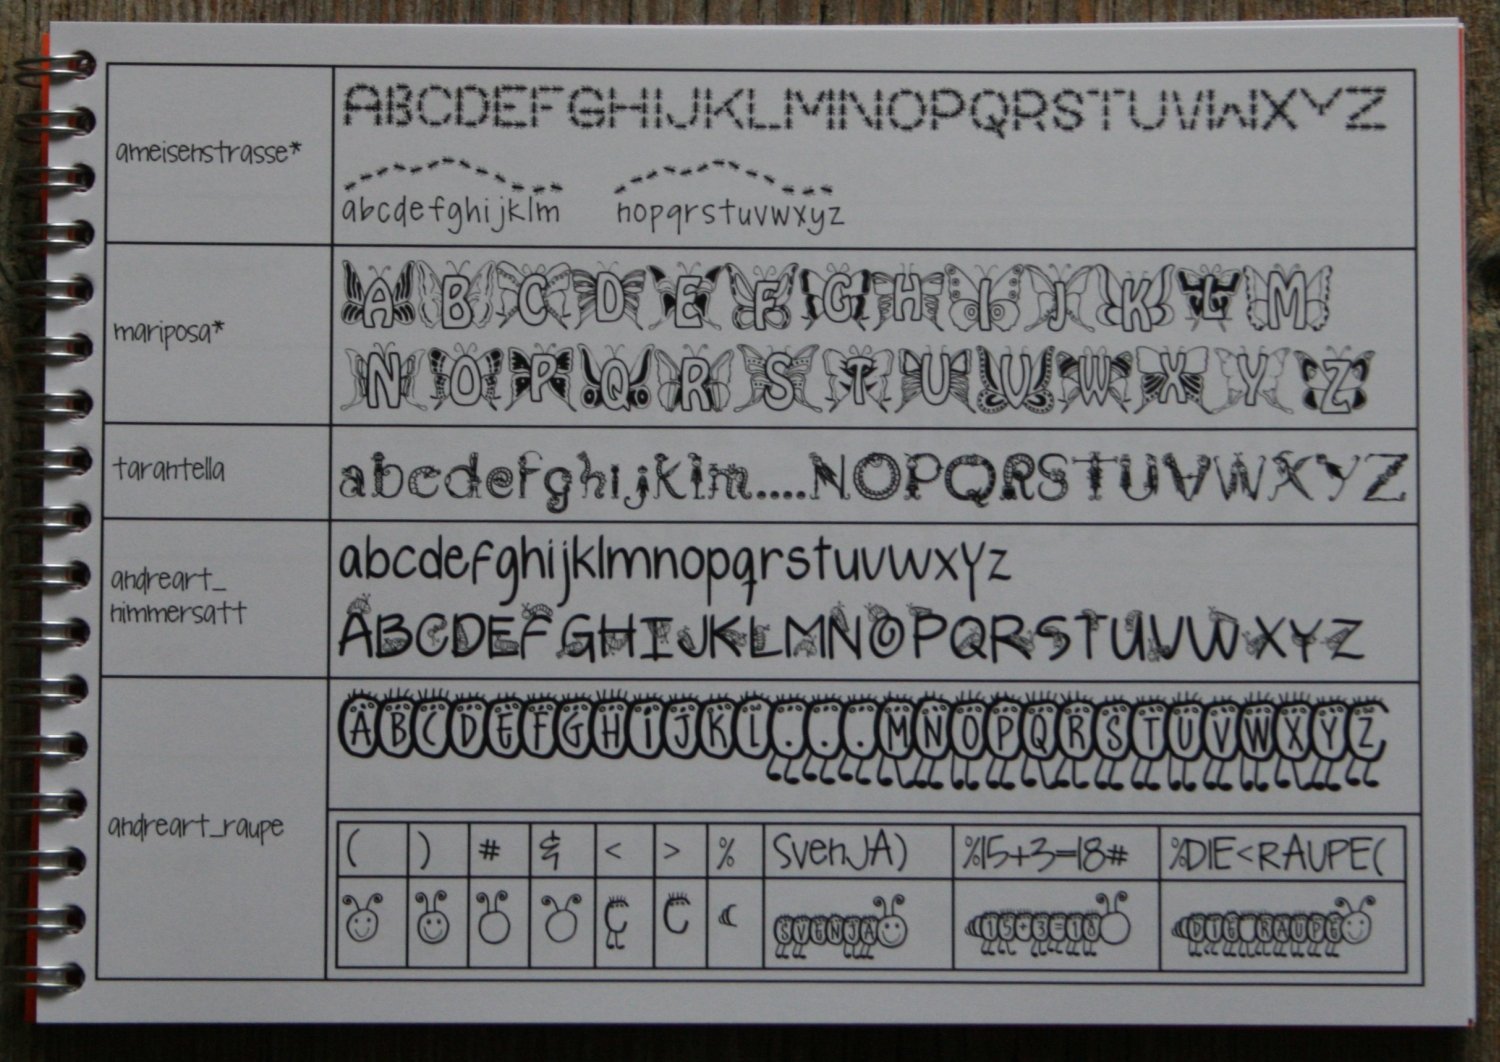 ameisenstrasse*
ABCDEFGHIJKLMNOPQRSTUVWXYZ
abcdefghijklm nopqrstuvwxyz
mariposa*
ABCDEFGHIJKLM
NOPQRSTUVWXYZ
tarantella
abcdefghijklm.....NOPQRSTUVWXYZ
andreart_
nimmersatt
abcdefghijklmnopqrstuvwxyz
ABCDEFGHIJKLMNOPQRSTUVWXYZ
andreart_raupe
ABCDEFGHIJKL...MNOPQRSTUVWXYZ
( ) # & < > % SvenJA) %15+3=18# %DIE<RAUPE(
SVENJA 15+3=18 DIE RAUPE